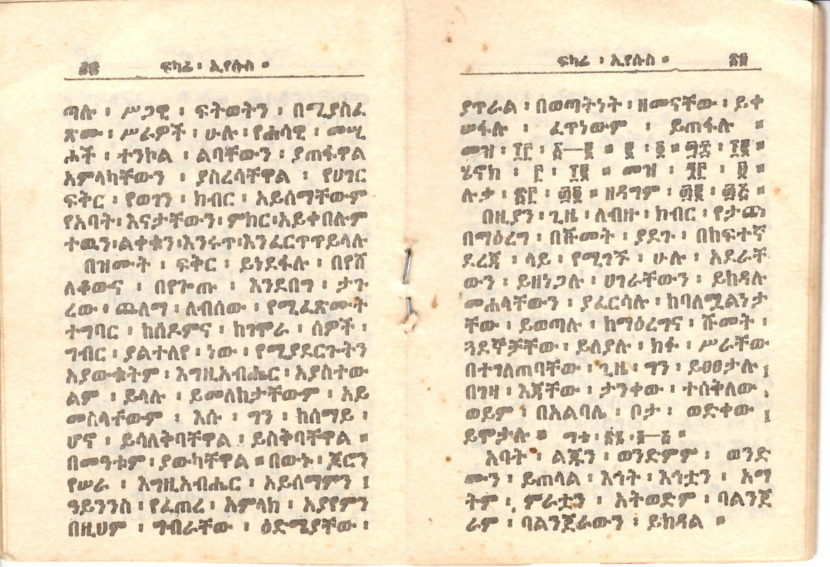 ፍካሬ ፡ ኢየሱስ ።
ጣሉ ፡ ሥጋዊ ፡ ፍትወትን ፡ በሚያስፈ
ጽሙ ፡ ሥራዎች ፡ ሁሉ ፡ የሐሳዊ ፡ መሢ
ሖች ፡ ተንኮል ፡ ልባቸውን ፡ ያጠፋዋል
አምላካቸውን ፡ ያስረሳቸዋል ፡ የሀገር
ፍቅር ፡ የወገን ፡ ክብር ፡ አይሰማቸውም
የአባት ፡ እናታቸውን ፡ ምክር ፡ አይቀበሉም
ተዉን ፡ ልቀቁን ፡ እንሩጥ ፡ እንፈርጥጥ ይላሉ
በዝሙት ፡ ፍቅር ፡ ይነደፋሉ ፡ በየሸ
ለቆውና ፡ በየጉጡ ፡ እንደበግ ፡ ታጉ
ረው ፡ ጨለማ ፡ ለብሰው ፡ የሚፈጽሙት
ተግባር ፡ ከሰዶምና ፡ ከገሞራ ፡ ሰዎች ፡
ግብር ፡ ያልተለየ ፡ ነው ፡ የሚያደርጉትን
አያውቁትም ፡ እግዚአብሔር ፡ አያስተው
ልም ፡ ይላሉ ፡ ይመለከታቸውም ፡ አይ
መስላቸውም ፡ እሱ ፡ ግን ፡ ከሰማይ ፡
ሆኖ ፡ ይሳለቅባቸዋል ፡ ይስቅባቸዋል ።
በመዓቱም ፡ ያውካቸዋል ። በውኑ ፡ ጆሮን
የሠራ ፡ እግዚአብሔር ፡ አይሰማምን ፤
ዓይንንስ ፡ የፈጠረ ፡ አምላክ ፡ አያየምን
በዚህም ፡ ግብራቸው ፡ ዕድሜያቸው ፡
ፍካሬ ፡ ኢየሱስ ።
ያጥራል ፡ በወጣትነት ፡ ዘመናቸው ፡ ይቀ
ሠፋሉ ፡ ፈጥነውም ፡ ይጠፋሉ ።
መዝ ፡
ሄኖክ ፡ መዝ ፡
ሉቃ ፡ ዘዳግም ፡
በዚያን ፡ ጊዜ ፡ ለብዙ ፡ ክብር ፡ የታጩ
በማዕረግ ፡ በሹመት ፡ ያደጉ ፡ በከፍተኛ
ደረጃ ፡ ላይ ፡ የሚገኙ ፡ ሁሉ ፡ አደራቸ
ውን ፡ ይዘነጋሉ ፡ ሀገራቸውን ፡ ይከዳሉ
መሐላቸውን ፡ ያፈርሳሉ ፡ ከባለሟልነታ
ቸው ፡ ይወጣሉ ፡ ከማዕረግና ፡ ሹመት ፡
ጓደኞቻቸው ፡ ይለያሉ ፡ ክፉ ፡ ሥራቸው
በተገለጠባቸው ፡ ጊዜ ፡ ግን ፡ ይፀፀታሉ ፤
በገዛ ፡ እጃቸው ፡ ታንቀው ፡ ተሰቅለው ፤
ወይም ፡ በአልባሌ ፡ ቦታ ፡ ወድቀው ፤
ይሞታሉ ።
አባት ፡ ልጁን ፡ ወንድምም ፡ ወንድ
ሙን ፡ ይጠላል ፡ እኅት ፡ እኅቷን ፡ አማ
ትም ፡ ምራቷን ፡ አትወድም ፡ ባልንጀ
ራም ፡ ባልንጀራውን ፡ ይከዳል ።